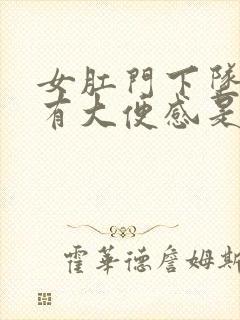 女肛門下墜
有大便感是
霍華德詹姆斯